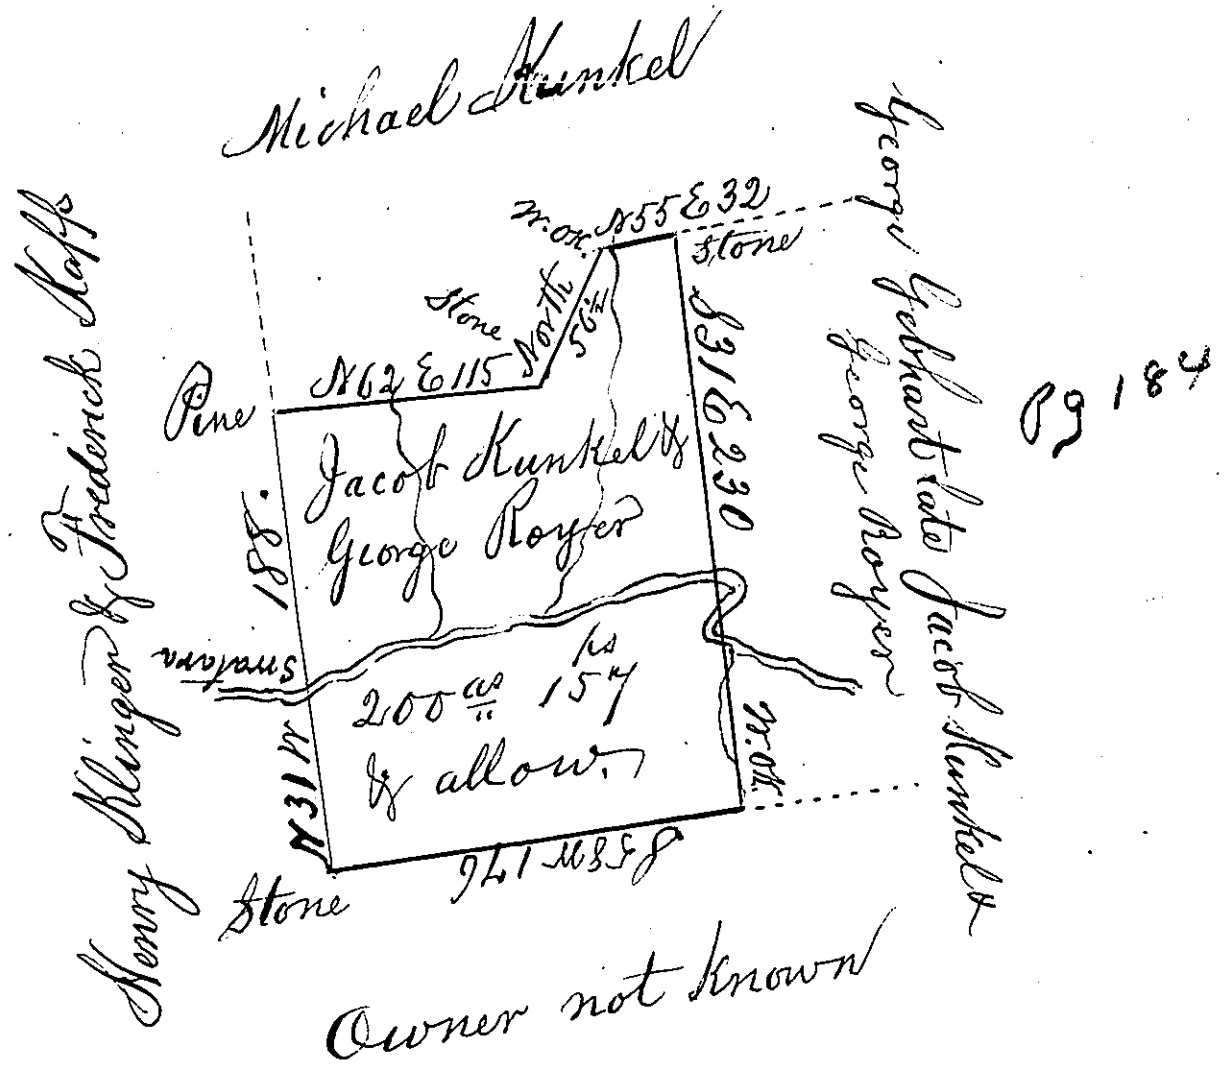 Michael Kunkel
Henry Klinger & Frederick Raffs
George Gebhart late Jacob Kunkel &
George Royer
Pg 184
W. OK.
N55E32
Stone
Stone
North
56½
Pine
N62E115
S31E230
Jacob Kunkel &
George Royer
188.
N31W
Swatara
200 as 157 ps
& allow.
W. OK.
S58W176
Stone
Owner not known